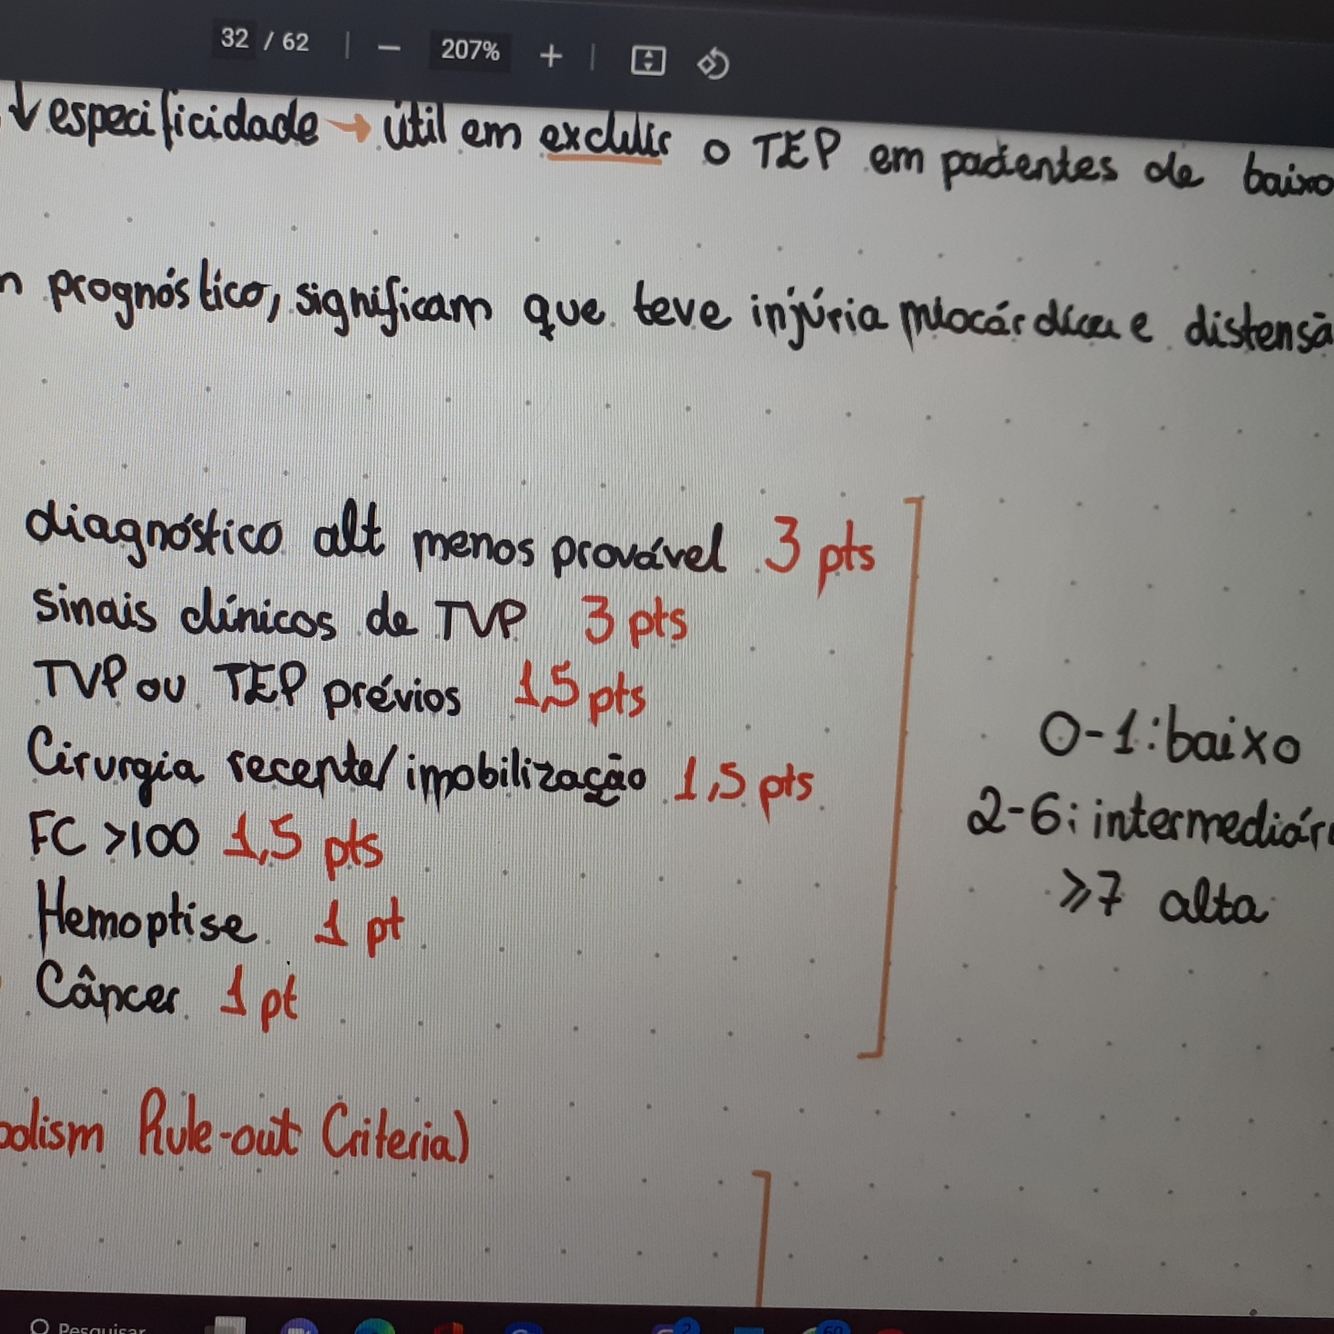 32 / 62 | − 207% + |
↓ especificidade → útil em excluir o TEP em pacientes de baixo
prognóstico, significam que teve injúria miocárdica e distensã
diagnóstico alt menos provável 3 pts
sinais clínicos de TVP 3 pts
TVP ou TEP prévios 1,5 pts
Cirurgia recente/imobilização 1,5 pts
FC >100 1,5 pts
Hemoptise 1 pt
Câncer 1 pt
0-1: baixo
2-6: intermediári
≥7 alta
bolism Rule-out Criteria)
Pesquisar